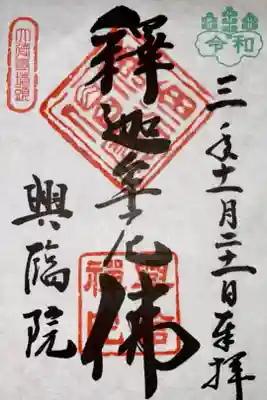 令和
三年十一月二十一日奉拝
釋迦牟尼佛
興臨院